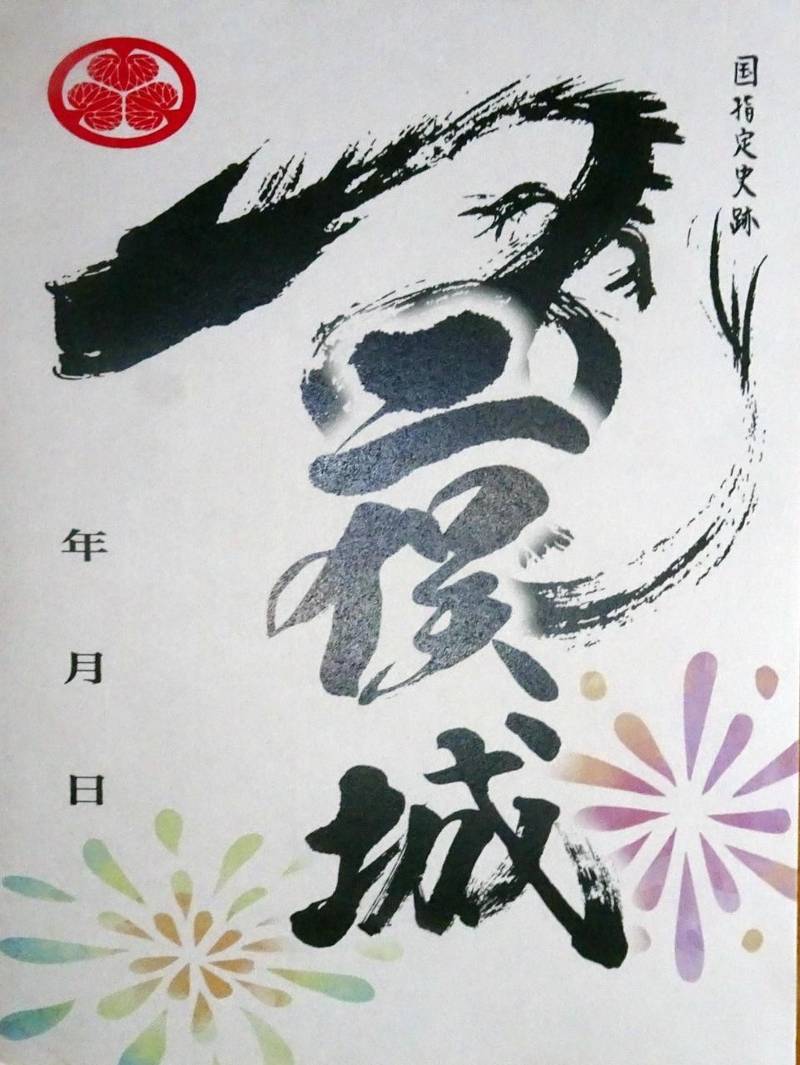 国指定史跡
二俣城
年月日